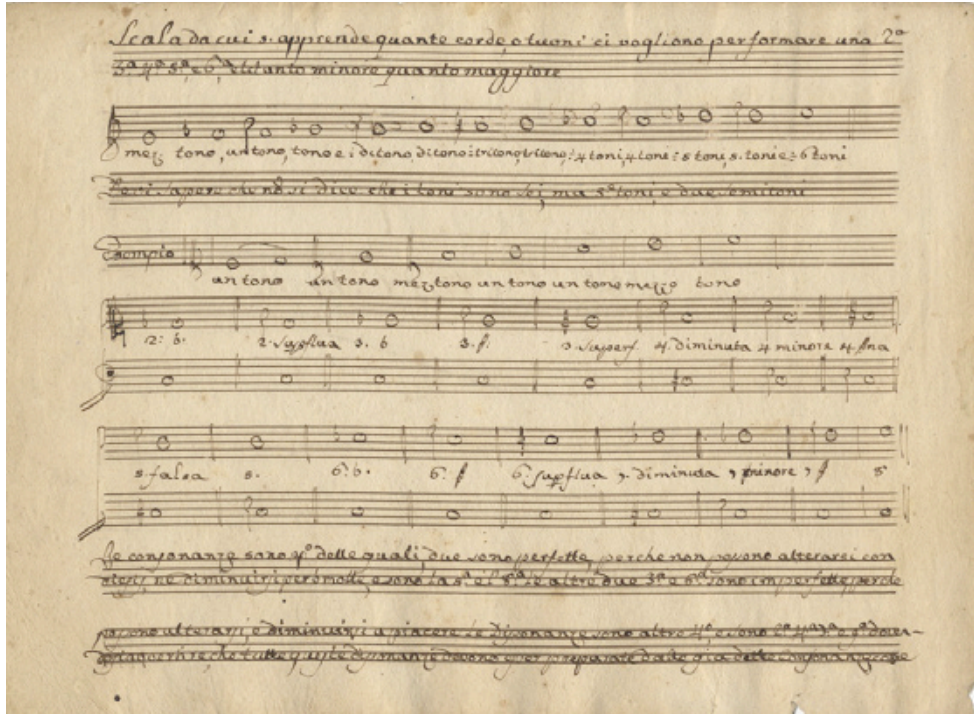 Scala da cui s. apprende quante corde, o tuoni ci vogliono per formare una 2ª
3ª 4ª 5ª, e 6ª, e tanto minore quanto maggiore
mez. tono, un tono, tono e: ditono ditono: tritono, tritono: 4 toni, 4 toni: 5 toni, 5. toni e: 6 toni
sapere che nō si dice che i toni sono sei, ma 5. toni, e due semitoni
Esempio
un tono un tono mez. tono un tono un tono mezzo tono
2: b. 2. supflua 3. b 3. #. 3 superf. 4. diminuta 4 minore 4
5 falsa 5. 6: b. 6: # 6: supflua 7. diminuta 7 minore 7 # 8
Le consonanze sono 4º delle quali, due sono perfette, perche non possono alterarsi con
diesis, ne diminuirsi però molli, e sono la 5ª e l' 8ª le altre due 3ª e 6ª sono imperfette perche
possono alterarsi, e diminuirsi a piacere le dissonanze sono altre 4º, e sono 2ª 4ª 7ª e 9ª
che tutte queste dissonanze devono esser preparate dalle consonanze